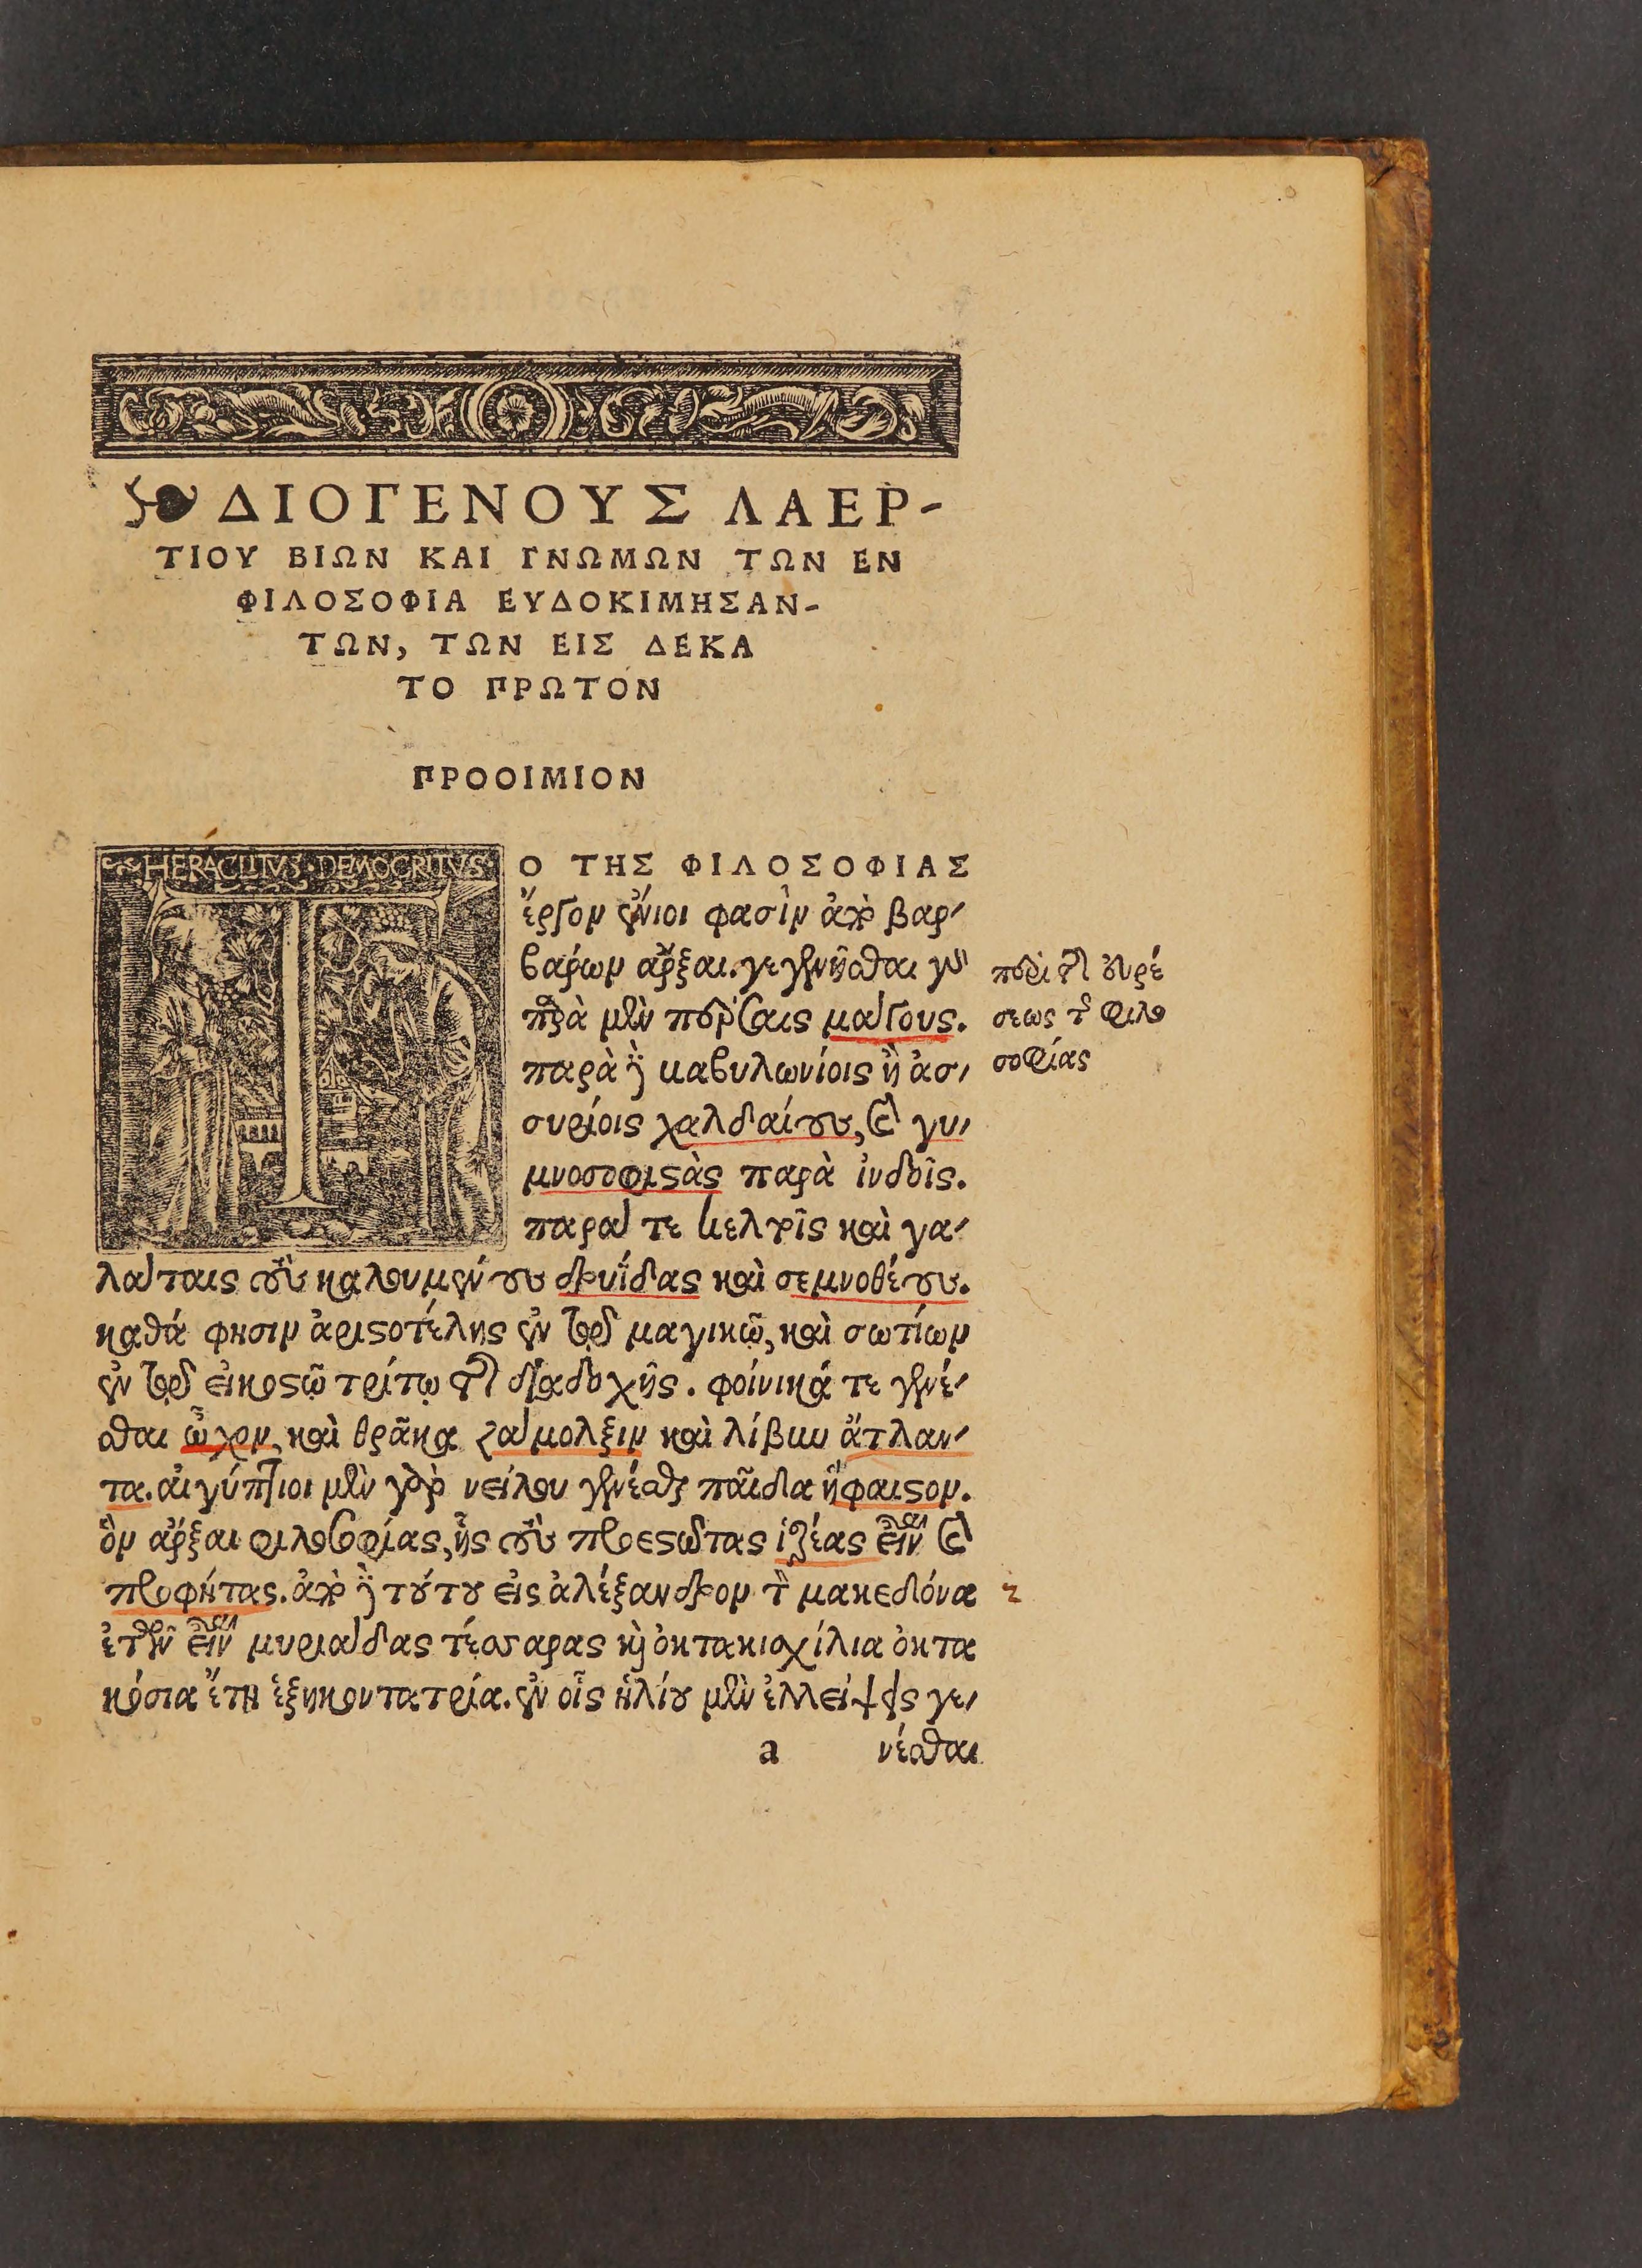 ΔΙΟΓΕΝΟΥΣ ΛΑΕΡ-
ΤΙΟΥ ΒΙΩΝ ΚΑΙ ΓΝΩΜΩΝ ΤΩΝ ΕΝ
ΦΙΛΟΣΟΦΙΑ ΕΥΔΟΚΙΜΗΣΑΝ-
ΤΩΝ, ΤΩΝ ΕΙΣ ΔΕΚΑ
ΤΟ ΠΡΩΤΟΝ
ΠΡΟΟΙΜΙΟΝ
HERACLITVS · DEMOCRITVS
ΤΟ ΤΗΣ ΦΙΛΟΣΟΦΙΑΣ
ἔργον ἔνιοι φασὶν ἀπὸ βαρ-
βάρων ἄρξαι. γεγενῆσθαι γὰρ
παρὰ μὲν πέρσαις μάγους.
παρὰ δὲ βαβυλωνίοις ἢ ἀσ-
συρίοις χαλδαίους, καὶ γυ-
μνοσοφιστὰς παρὰ ἰνδοῖς.
παρά τε κελτοῖς καὶ γα-
λάταις τοὺς καλουμένους δρυΐδας καὶ σεμνοθέους.
καθά φησιν ἀριστοτέλης ἐν τῷ μαγικῷ, καὶ σωτίων
ἐν τῷ εἰκοστῷ τρίτῳ τῆς διαδοχῆς. φοίνικά τε γενέ-
σθαι ὦχον, καὶ θρᾷκα ζάμολξιν καὶ λίβυν ἄτλαν-
τα. αἰγύπτιοι μὲν γὰρ νείλου γενέσθαι παῖδα ἥφαιστον.
ὃν ἄρξαι φιλοσοφίας, ἧς τοὺς προεστῶτας ἱερέας εἶναι καὶ
προφήτας. ἀπὸ δὲ τούτου εἰς ἀλέξανδρον τὸν μακεδόνα
ἐτῶν εἶναι μυριάδας τέσσαρας καὶ ὀκτακισχίλια ὀκτα
κόσια ἔτη ἑξηκοντατρία. ἐν οἷς ἡλίου μὲν ἐλλείψεις γε-
a νέσθαι
περὶ τῆς εὑρέ
σεως τῆς φιλο
σοφίας